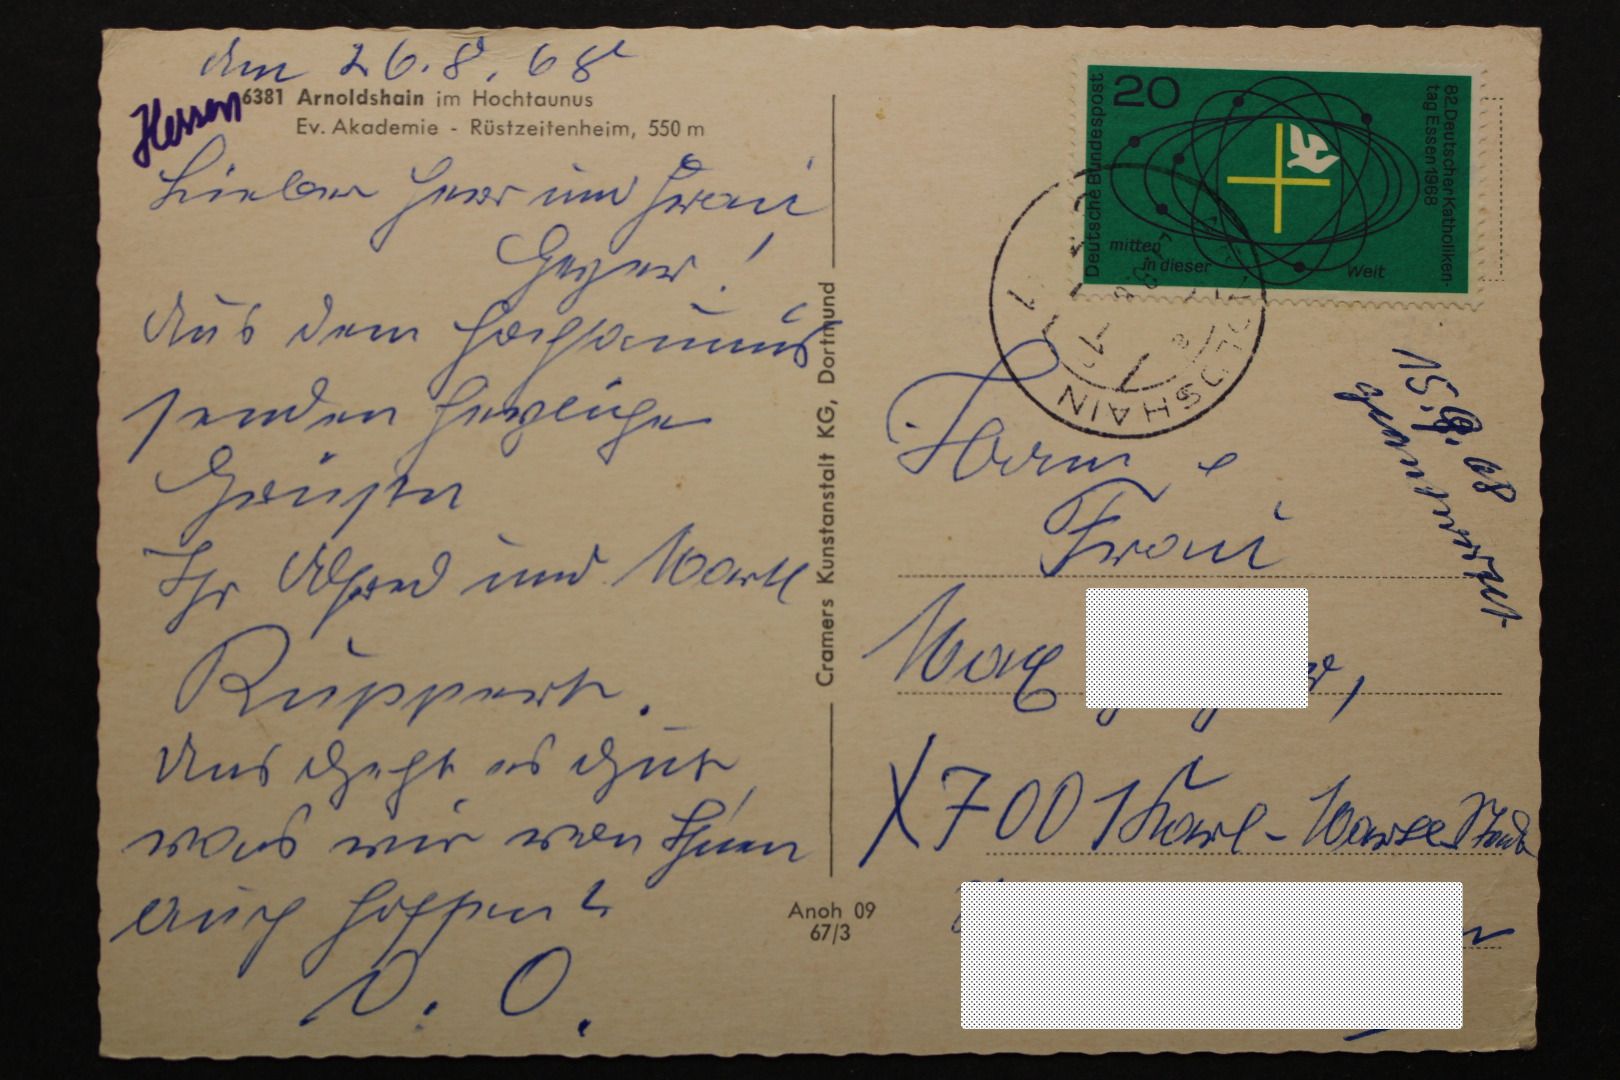 den 26.8.68
Hessen
6381 Arnoldshain im Hochtaunus
Ev. Akademie - Rüstzeitenheim, 550 m
Lieber Herr und Frau
Geyer!
Aus dem Hochtaunus
senden herzliche
Grüße
Ihr Alfred und
Ruppert.
Uns geht es gut,
was wir von Ihnen
auch hoffen?
D. O.
Cramers Kunstanstalt KG, Dortmund
Anoh 09
67/3
Deutsche Bundespost
20
82. Deutscher Katholiken-
tag Essen 1968
mitten
in dieser
Welt
Herrn e
Frau
Max
X 7001 Karl-Marx Stadt